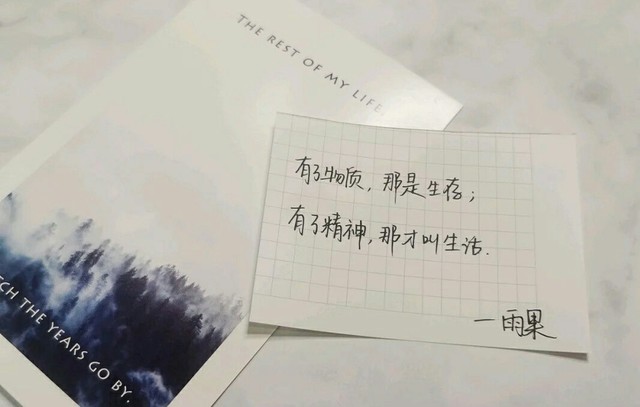 THE REST OF MY LIFE.
有了物质，那是生存；
有了精神，那才叫生活.
一雨果
TCH THE YEARS GO BY.